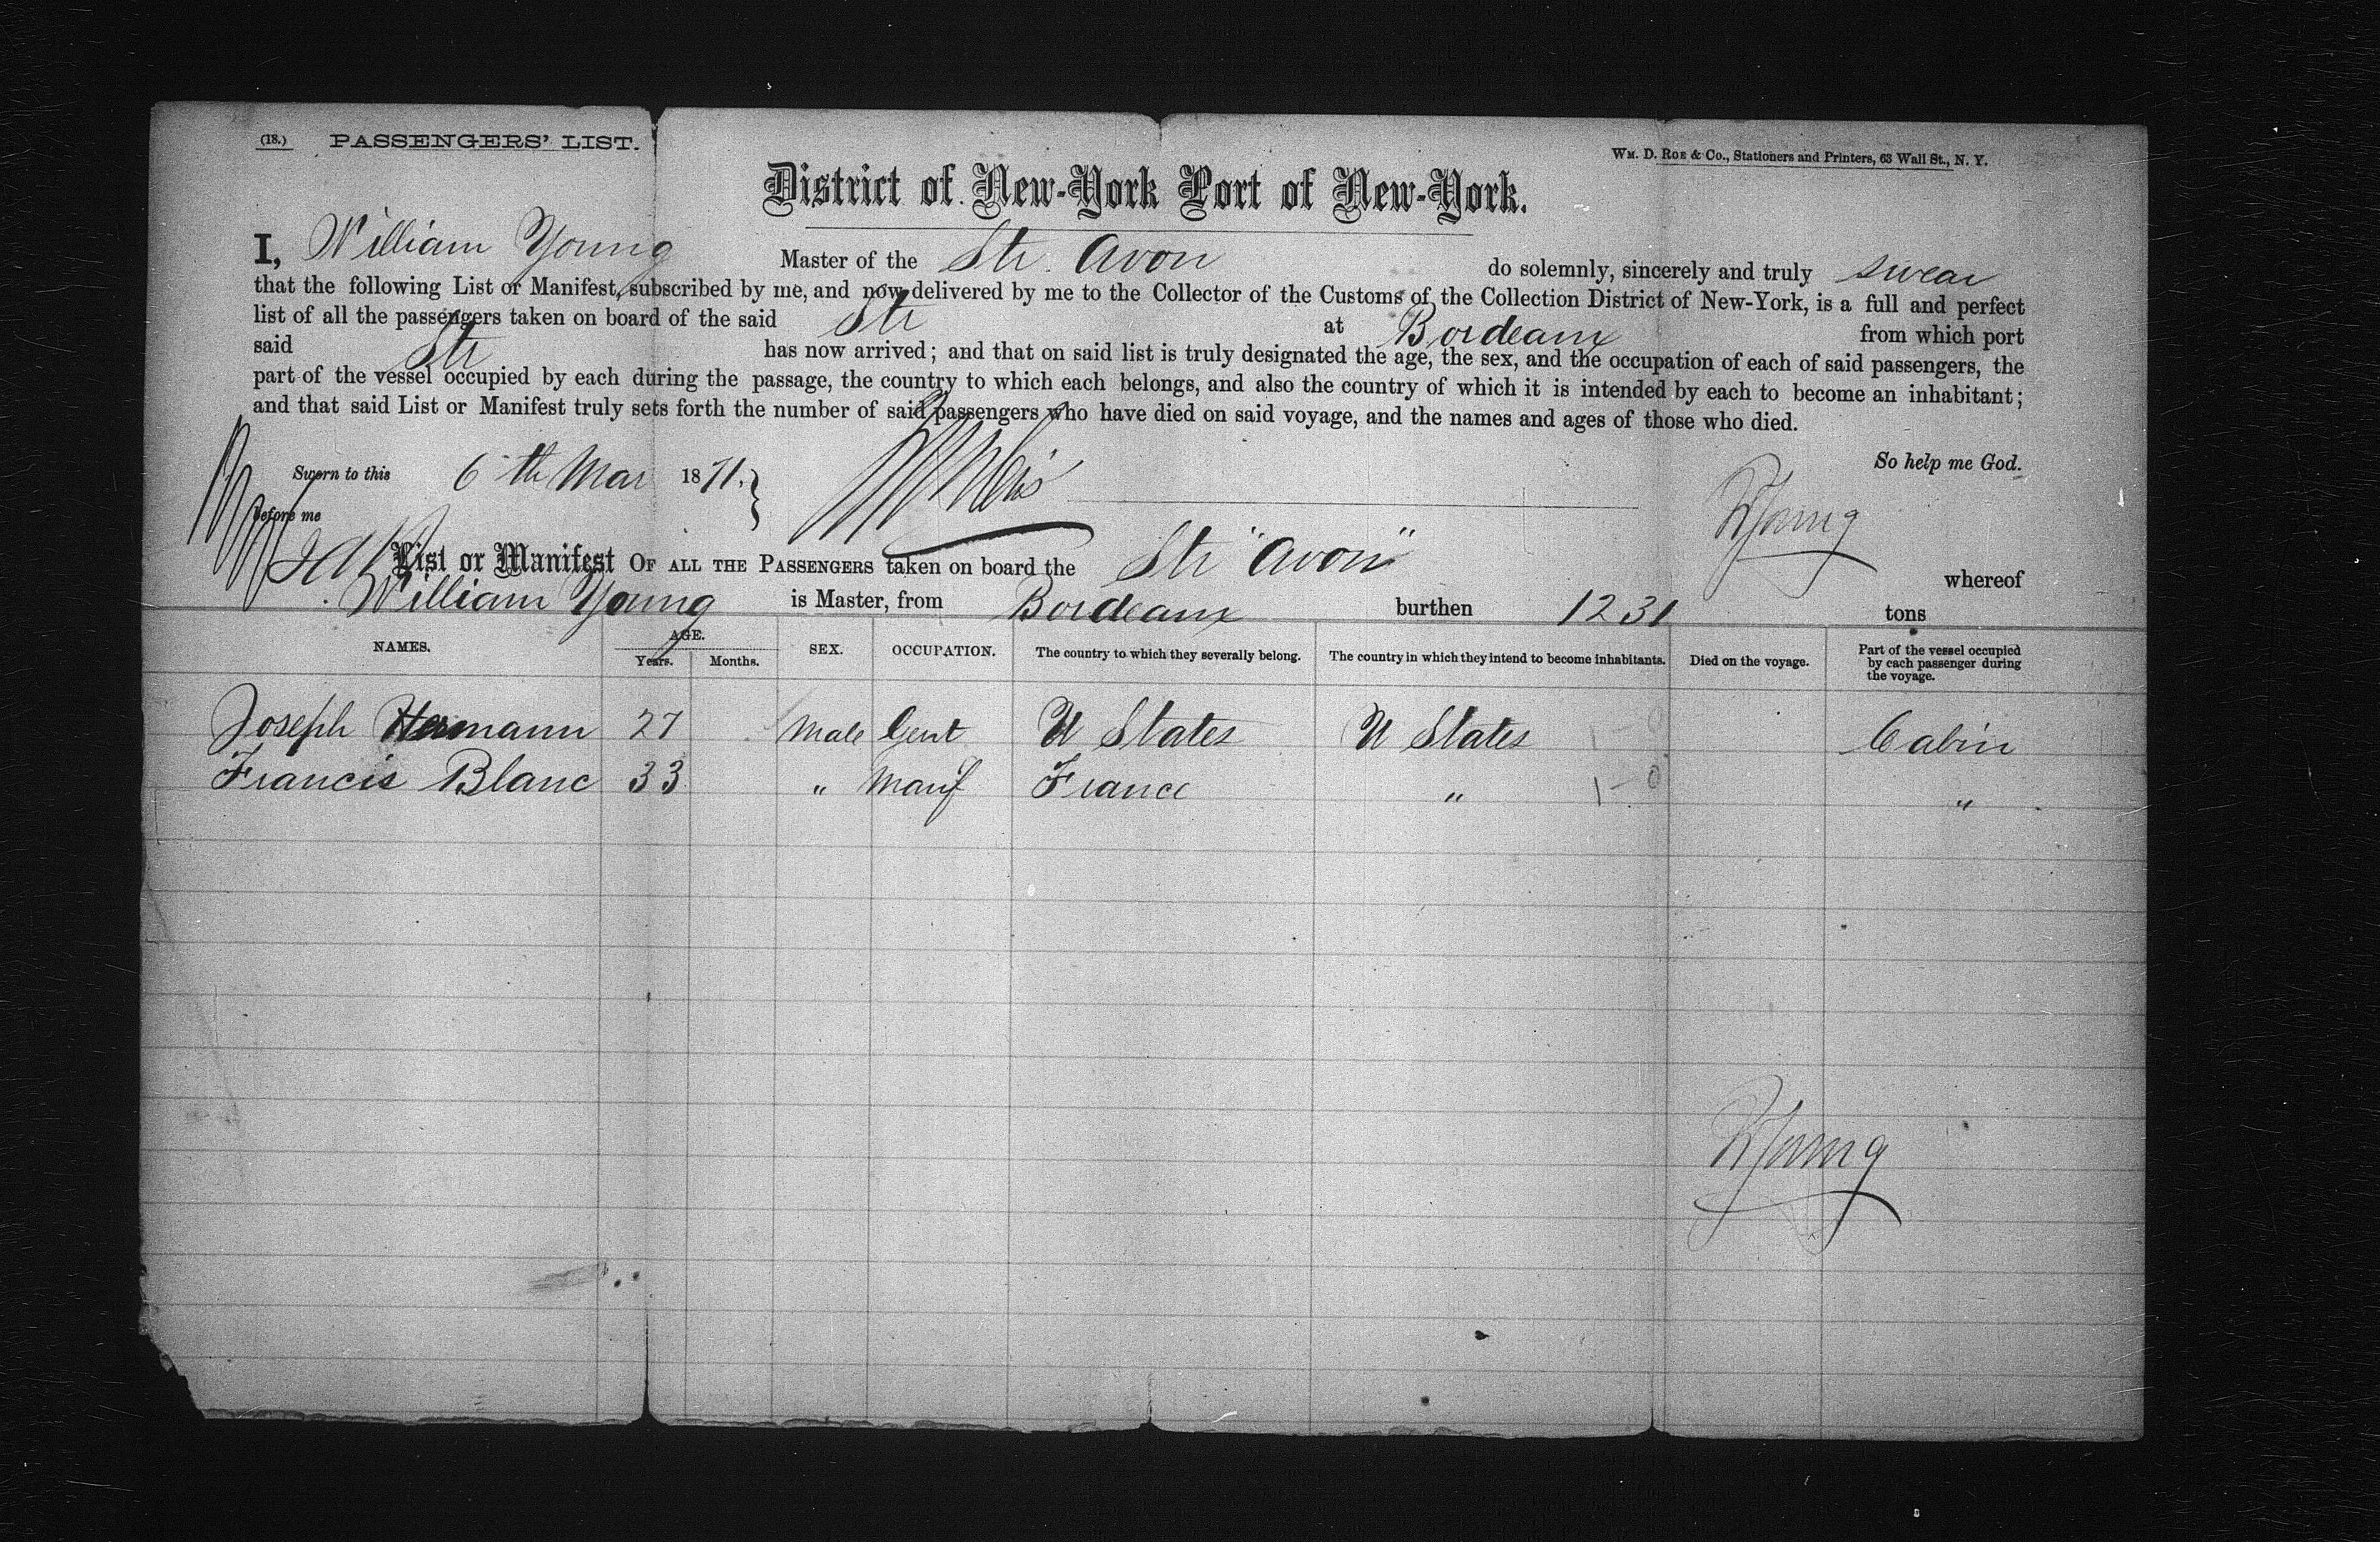 (18.) PASSENGERS' LIST.
WM. D. ROE & CO., Stationers and Printers, 63 Wall St., N. Y.
District of New-York Port of New-York.
I, William Young Master of the Str. Avon do solemnly, sincerely and truly swear
that the following List or Manifest, subscribed by me, and now delivered by me to the Collector of the Customs of the Collection District of New-York, is a full and perfect
list of all the passengers taken on board of the said Str at Bordeaux from which port
said Str has now arrived; and that on said list is truly designated the age, the sex, and the occupation of each of said passengers, the
part of the vessel occupied by each during the passage, the country to which each belongs, and also the country of which it is intended by each to become an inhabitant;
and that said List or Manifest truly sets forth the number of said passengers who have died on said voyage, and the names and ages of those who died.
So help me God.
Sworn to this 6th Mar 1871.
before me
WYoung
List or Manifest OF ALL THE PASSENGERS taken on board the Str "Avon" whereof
William Young is Master, from Bordeaux burthen 1231 tons
NAMES. AGE. Years. Months. SEX. OCCUPATION. The country to which they severally belong. The country in which they intend to become inhabitants. Died on the voyage. Part of the vessel occupied by each passenger during the voyage.
Joseph Hermann 27 Male Gent U States U States 1-0 Cabin
Francis Blanc 33 " Manf France " 1-0 "
WYoung